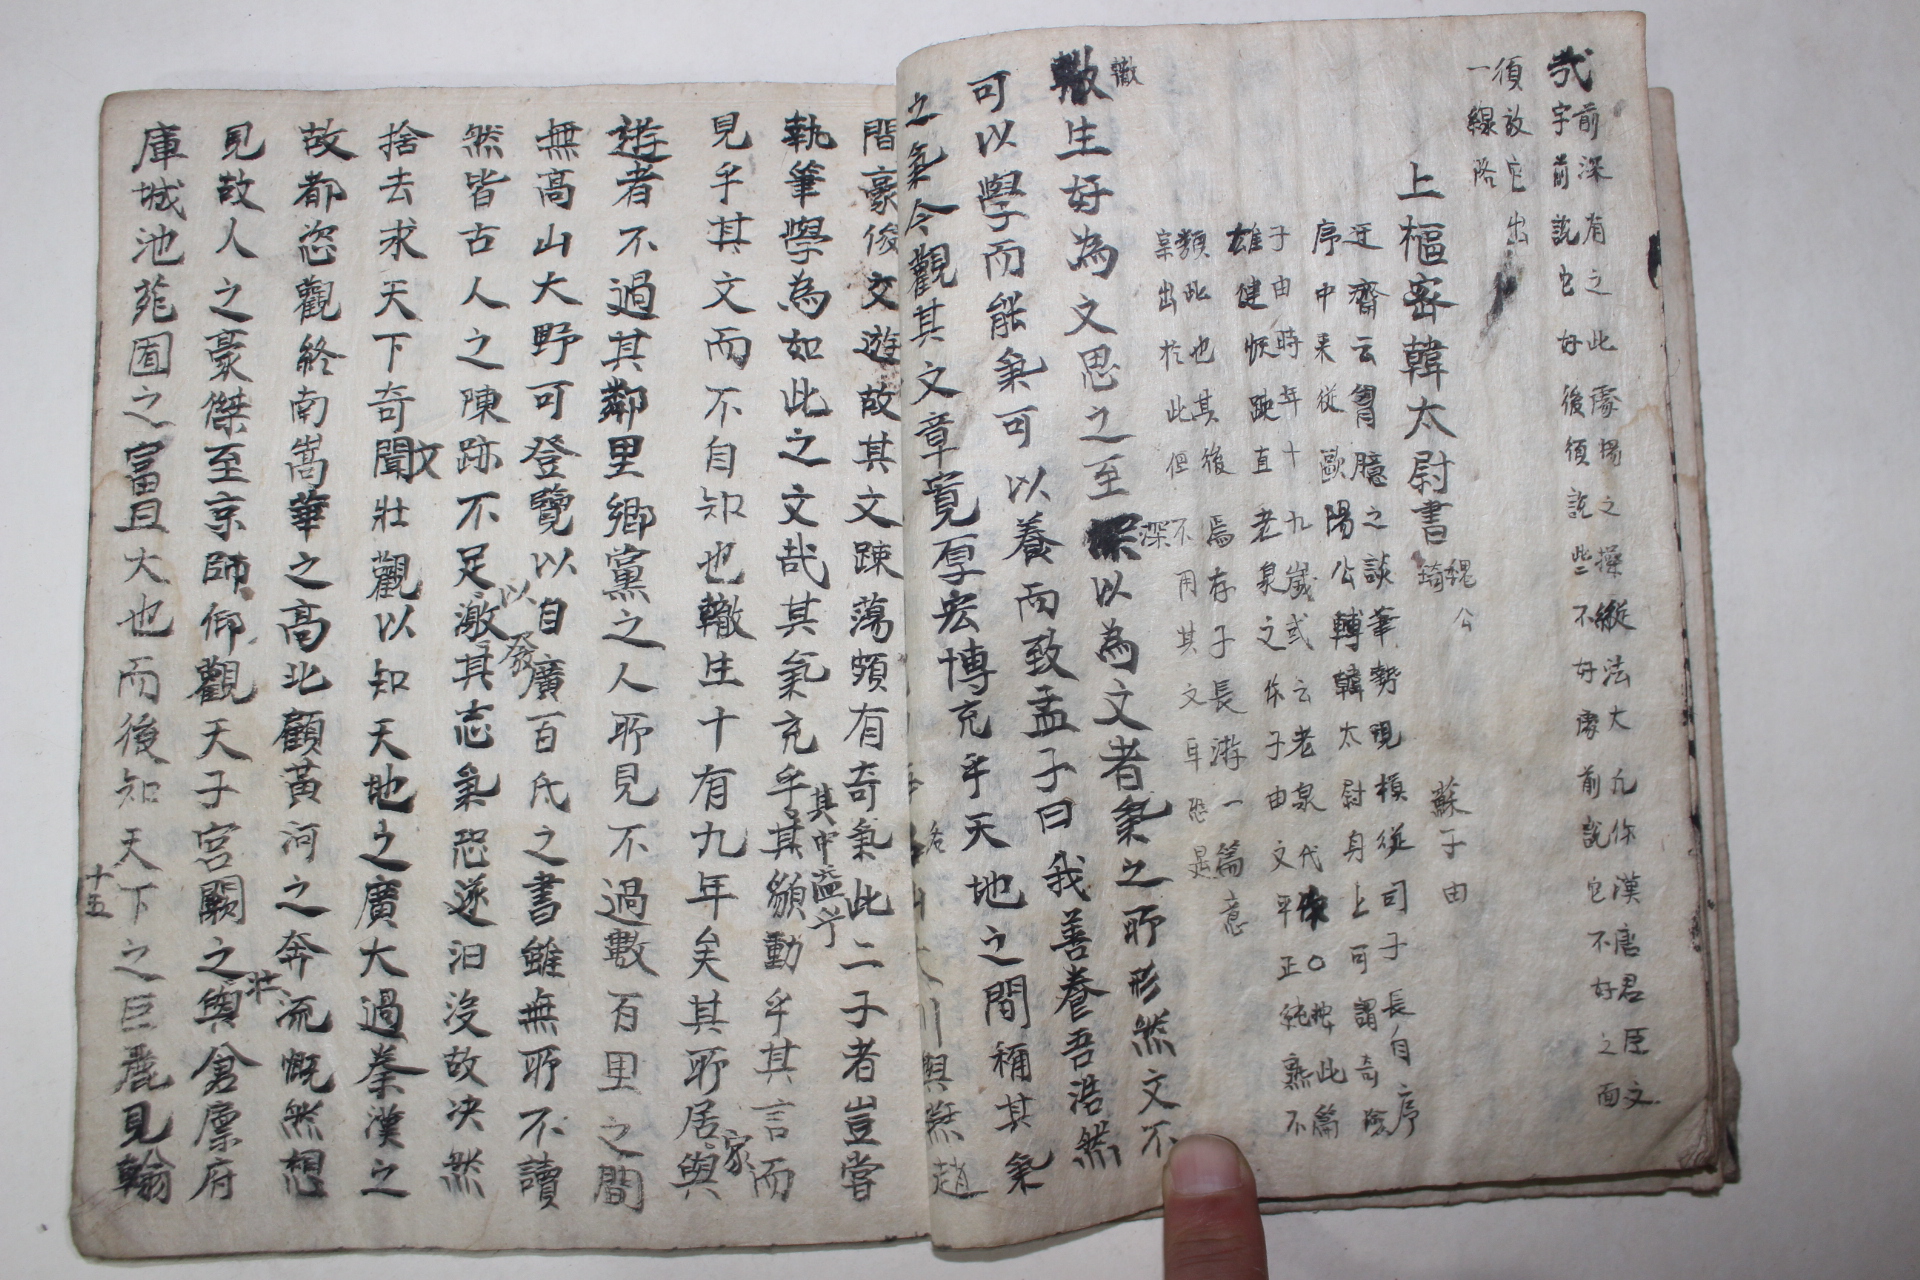 哉
前深有之此處見之操縱法大凡你漢唐君臣文
字前說它好後須說些不好處前說它不好之面
須放它出
一線路
上樞密韓太尉書
魏公
琦
蘇子由
迂齋云胷臆之談筆勢規模從司子長自序
序中来從歐陽公轉韓太尉身上可謂奇險
子由時年十九歲或云老泉代作○按此篇
雄健恢踈直老泉之作子由文平正純熟不
類此也其後焉存子長游一篇意
亲出於此但不用其文耳恐是
轍
轍生好為文思之至深以為文者氣之所形然文不
深
可以學而能氣可以養而致孟子曰我善養吾浩然
之氣今觀其文章寬厚宏博充乎天地之間稱其氣
川與燕趙
間豪俊交遊故其文踈蕩頗有奇氣此二子者豈嘗
執筆學為如此之文哉其氣充乎其䫉動乎其言而
其中溢乎
見乎其文而不自知也轍生十有九年矣其所居與
家
遊者不過其鄰里鄉黨之人所見不過數百里之間
無高山大野可登覽以自廣百氏之書雖無所不讀
然皆古人之陳跡不足激其志氣恐遂汩沒故决然
以發
捨去求天下奇聞壯觀以知天地之廣大過秦漢之
文
故都恣觀終南嵩華之高北顧黃河之奔流慨然想
見故人之豪傑至京師仰觀天子宮闕之與倉廩府
壯
庫城池苑囿之富且大也而後知天下之巨麗見翰
十五